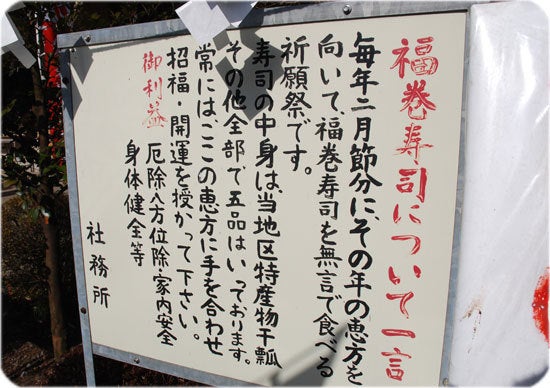 福巻寿司について一言
毎年二月節分に、その年の恵方を
向いて、福巻寿司を無言で食べる
祈願祭です。
寿司の中身は、当地区特産物干瓢
その他全部で五品はいっております。
常には、ここの恵方に手を合わせ
招福・開運を授かって下さい。
御利益 厄除・八方位除・家内安全
身体健全等
社務所